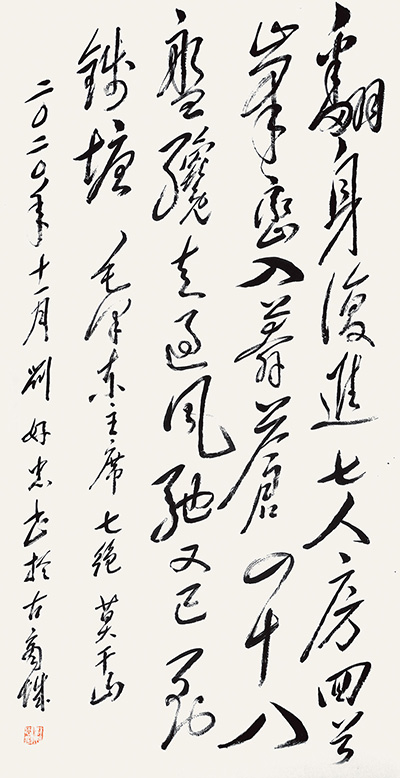 翻身復進七人房回首
峯巒入莽蒼四十八
盤纔走過風馳又已到
錢塘 毛澤東主席七絕莫干山
二〇二〇年十一月劉好忠書於古商城